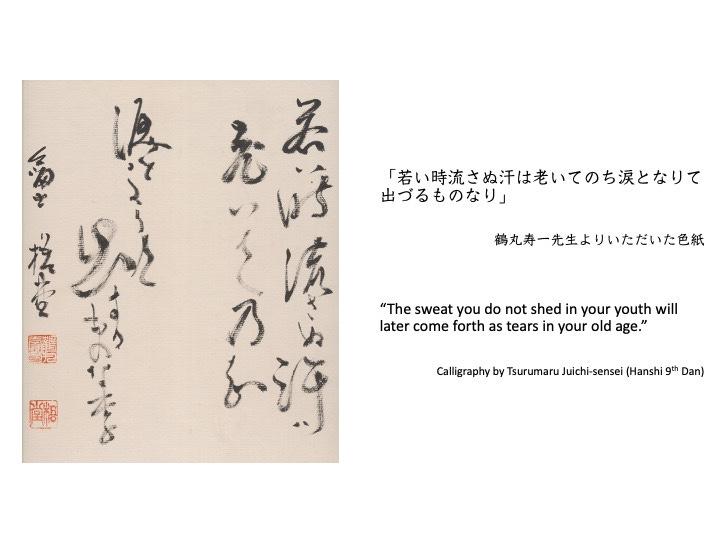 若い時流さぬ汗は
老いて乃ち
涙と
「若い時流さぬ汗は老いてのち涙となりて
出づるものなり」
鶴丸寿一先生よりいただいた色紙
“The sweat you do not shed in your youth will
later come forth as tears in your old age.”
Calligraphy by Tsurumaru Juichi-sensei (Hanshi 9th Dan)